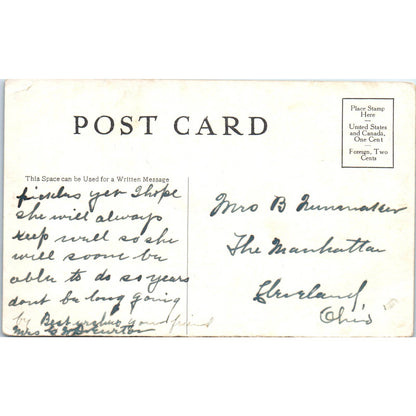 POST CARD
Place Stamp
Here
United States
and Canada,
One Cent
Foreign, Two
Cents
This Space can be Used for a Written Message
pickles yet I hope
she will always
keep well so she
will soon be
able to do so years
dont be long going
by Best wishes your friend
Mrs
Mrs B Nunamaker
The Manhattan
Cleveland,
Ohio